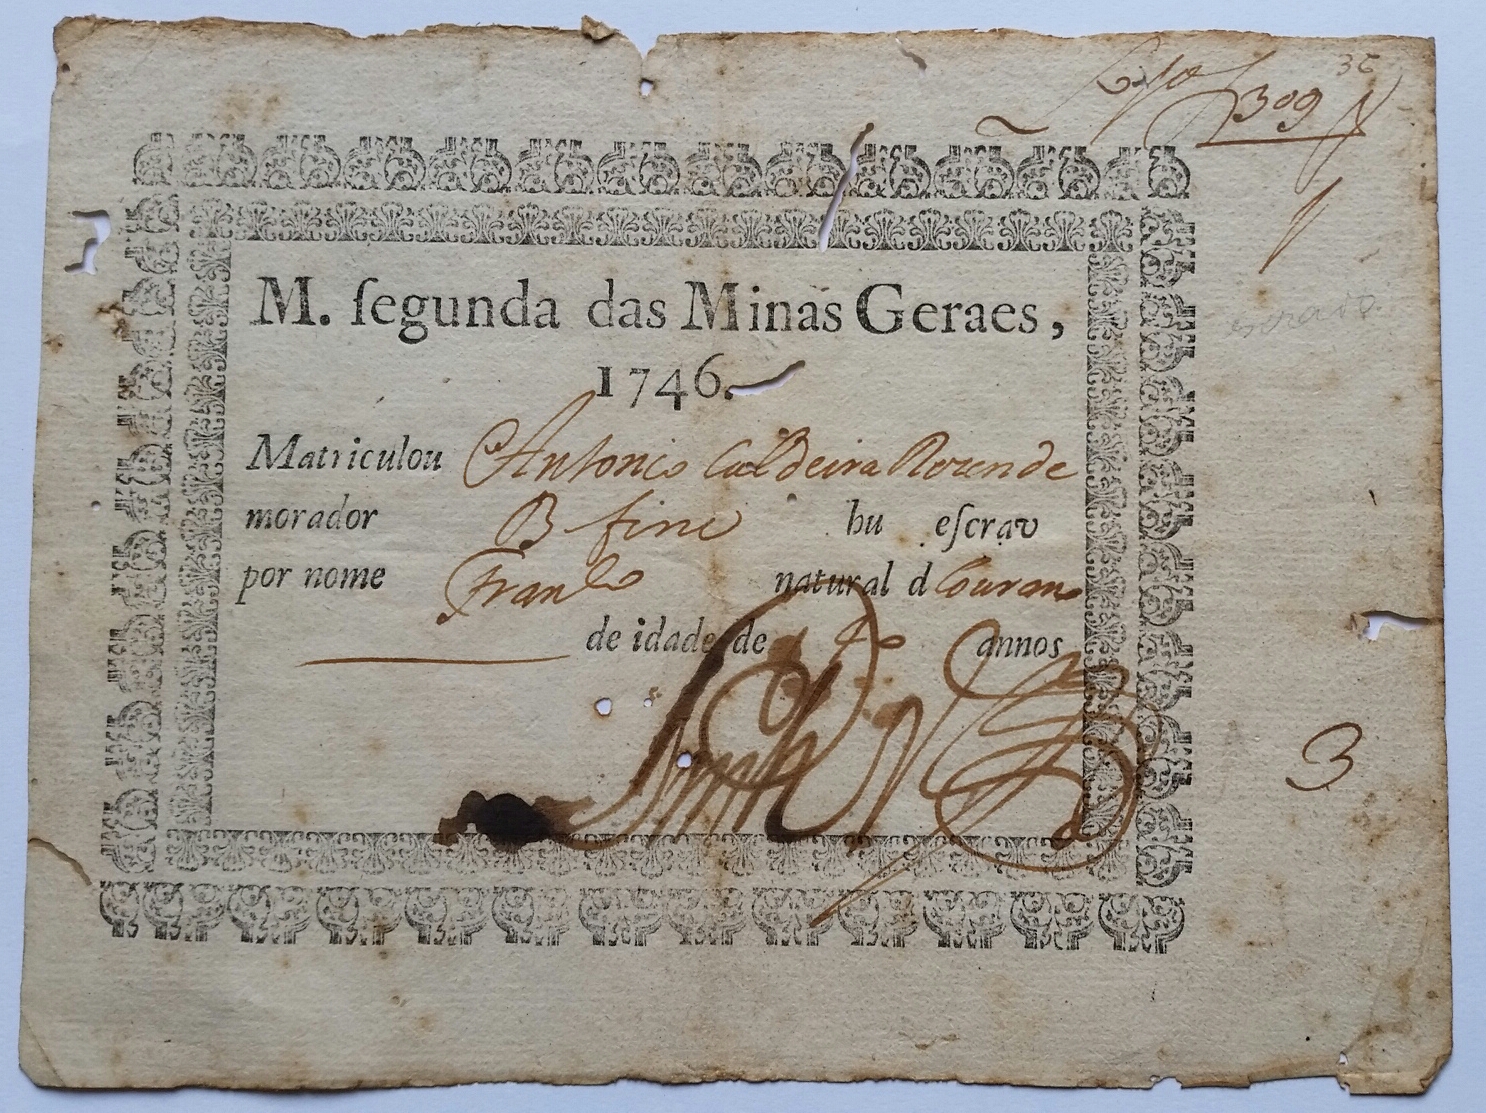 35
309
M. ſegunda das Minas Geraes,
1746.
Matriculou Antonio Caldeira Rozende
morador B fine hu eſcrav
por nome Franco natural d Courano
de idade de annos
escravo.
3